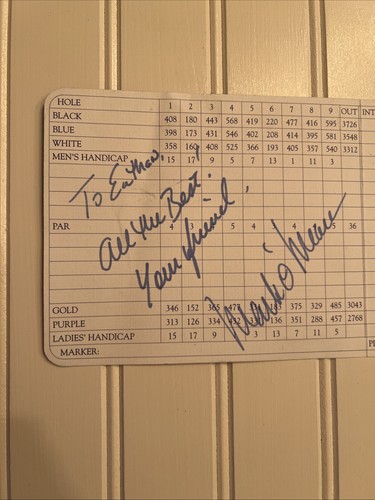 HOLE 1 2 3 4 5 6 7 8 9 OUT INT
BLACK 408 180 443 568 419 220 477 416 595 3726
BLUE 398 173 431 546 402 208 414 395 581 3548
WHITE 358 160 408 525 366 193 405 357 540 3312
MEN'S HANDICAP 15 17 9 5 7 13 1 11 3
To Eathan,
All the Best!
Your friend,
Mark O'Meara
PAR 4 3 5 4 5 36
GOLD 346 152 365 477 183 375 329 485 3043
PURPLE 313 126 334 136 351 288 457 2768
LADIES' HANDICAP 15 17 9 3 13 7 11 5
MARKER: